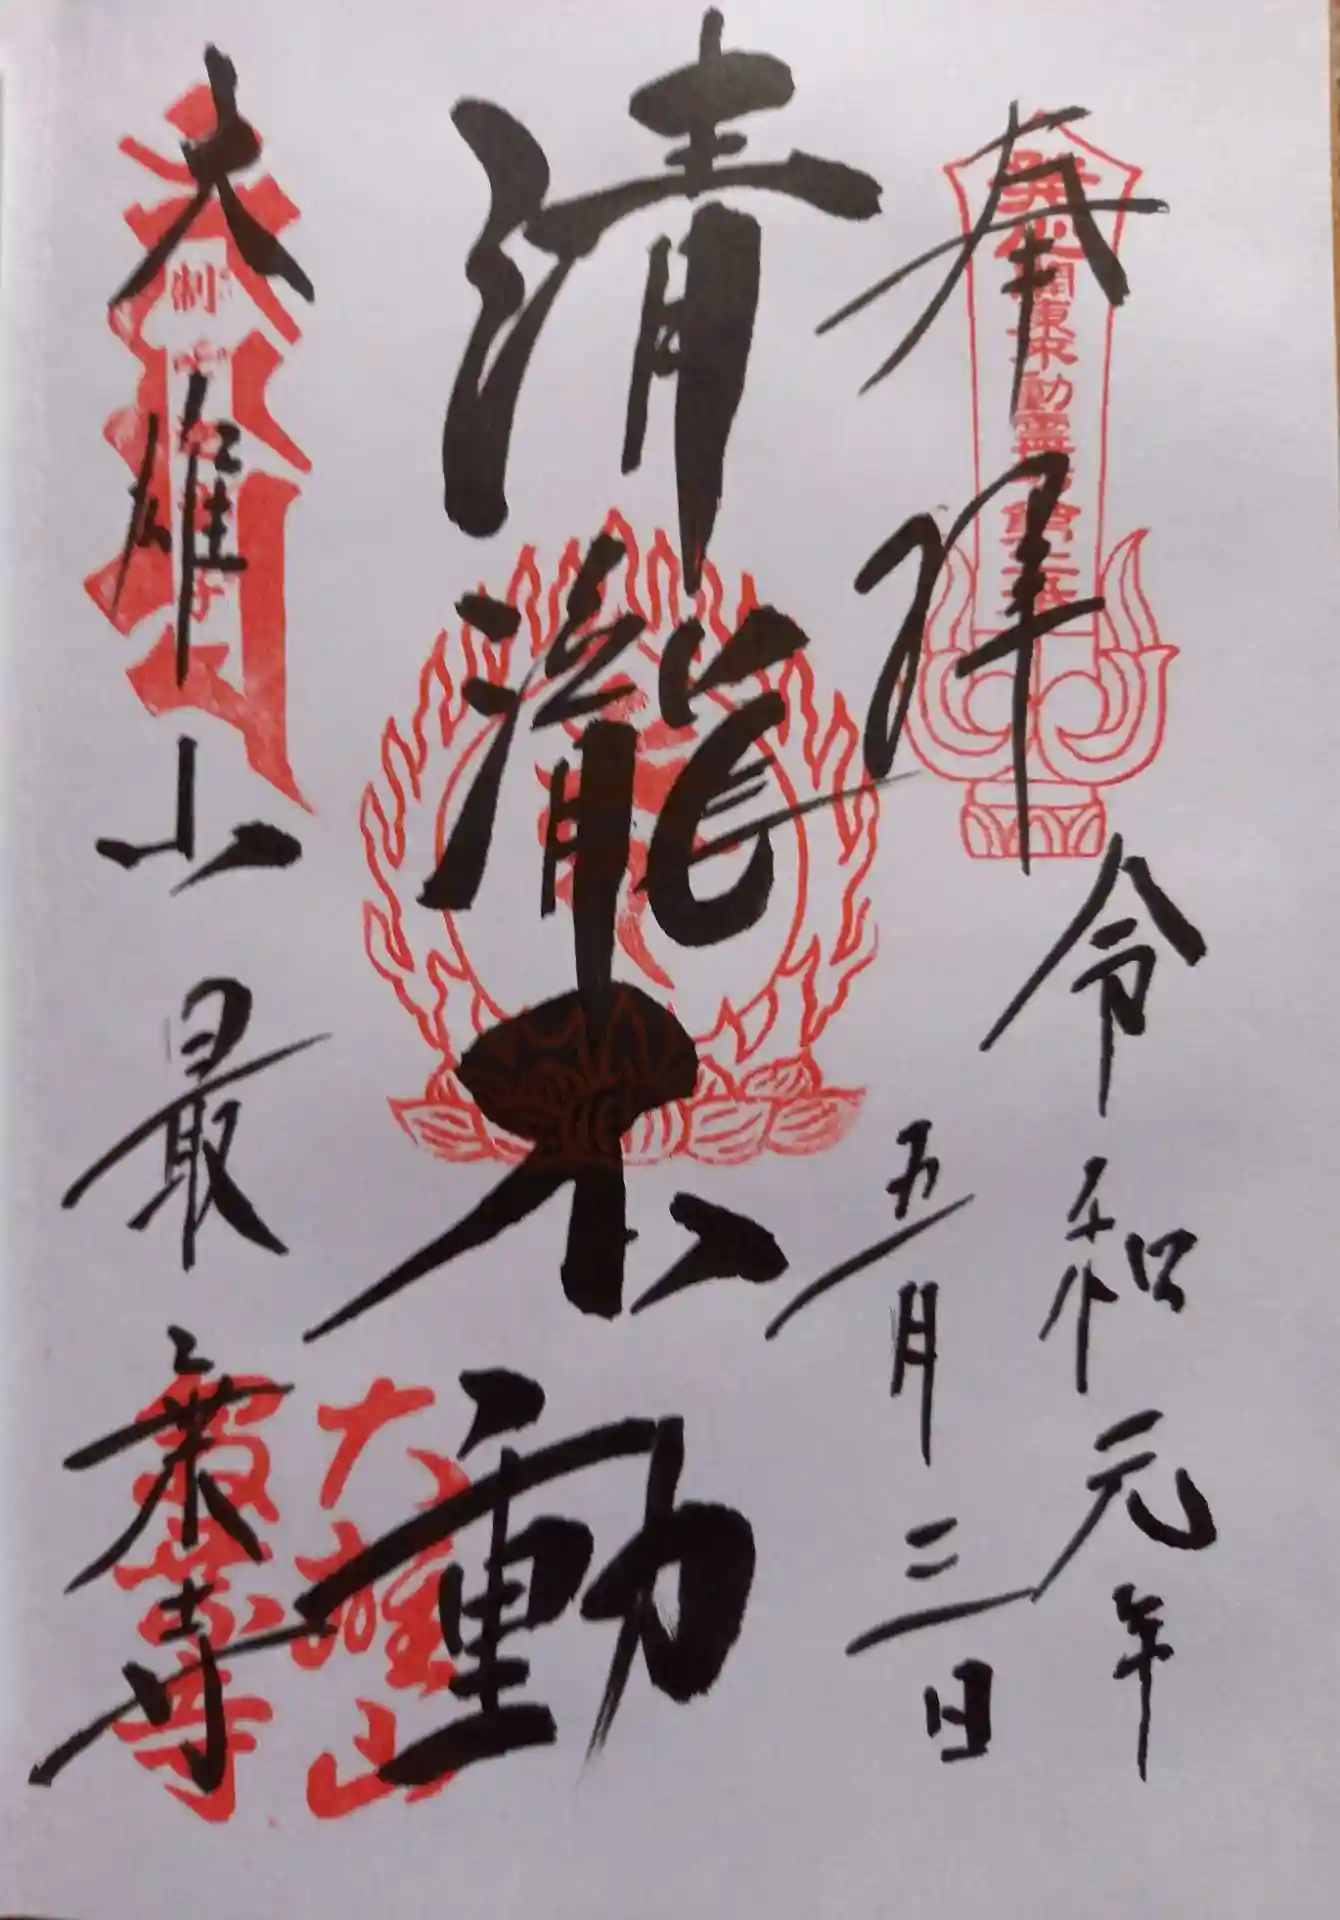 奉拝
令和元年
五月三日
清瀧不動
大雄山最乗寺
関東不動霊場第二番
大雄山
最乗寺